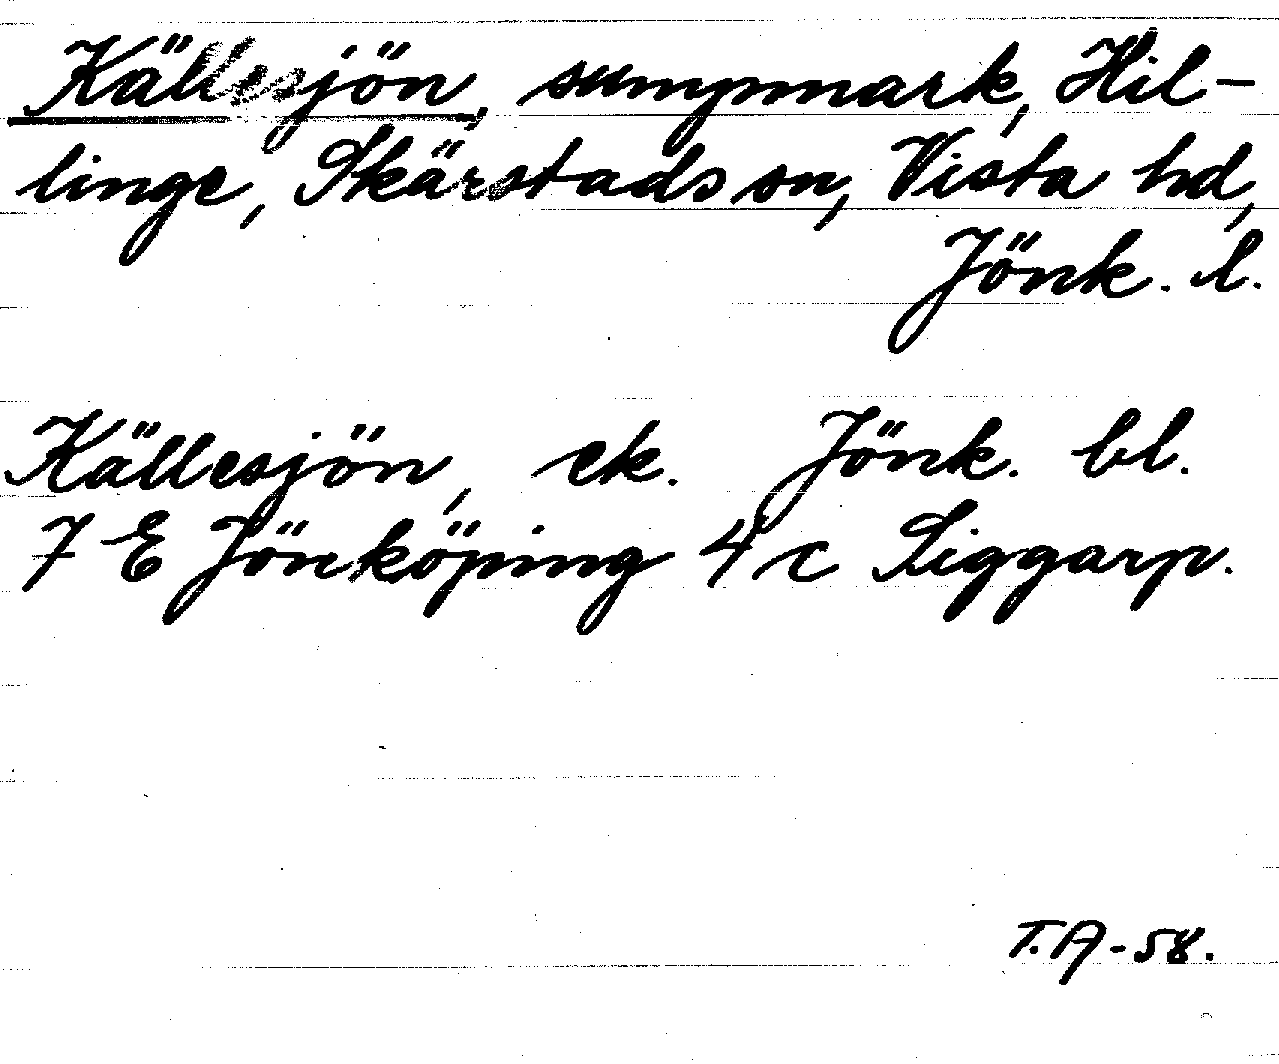 Källesjön, sumpmark, Hil-
linge, Skärstads sn, Vista hd,
Jönk. l.
Källesjön, ek. Jönk. bl.
7 E Jönköping 4 c Siggarp.
T.A-58.